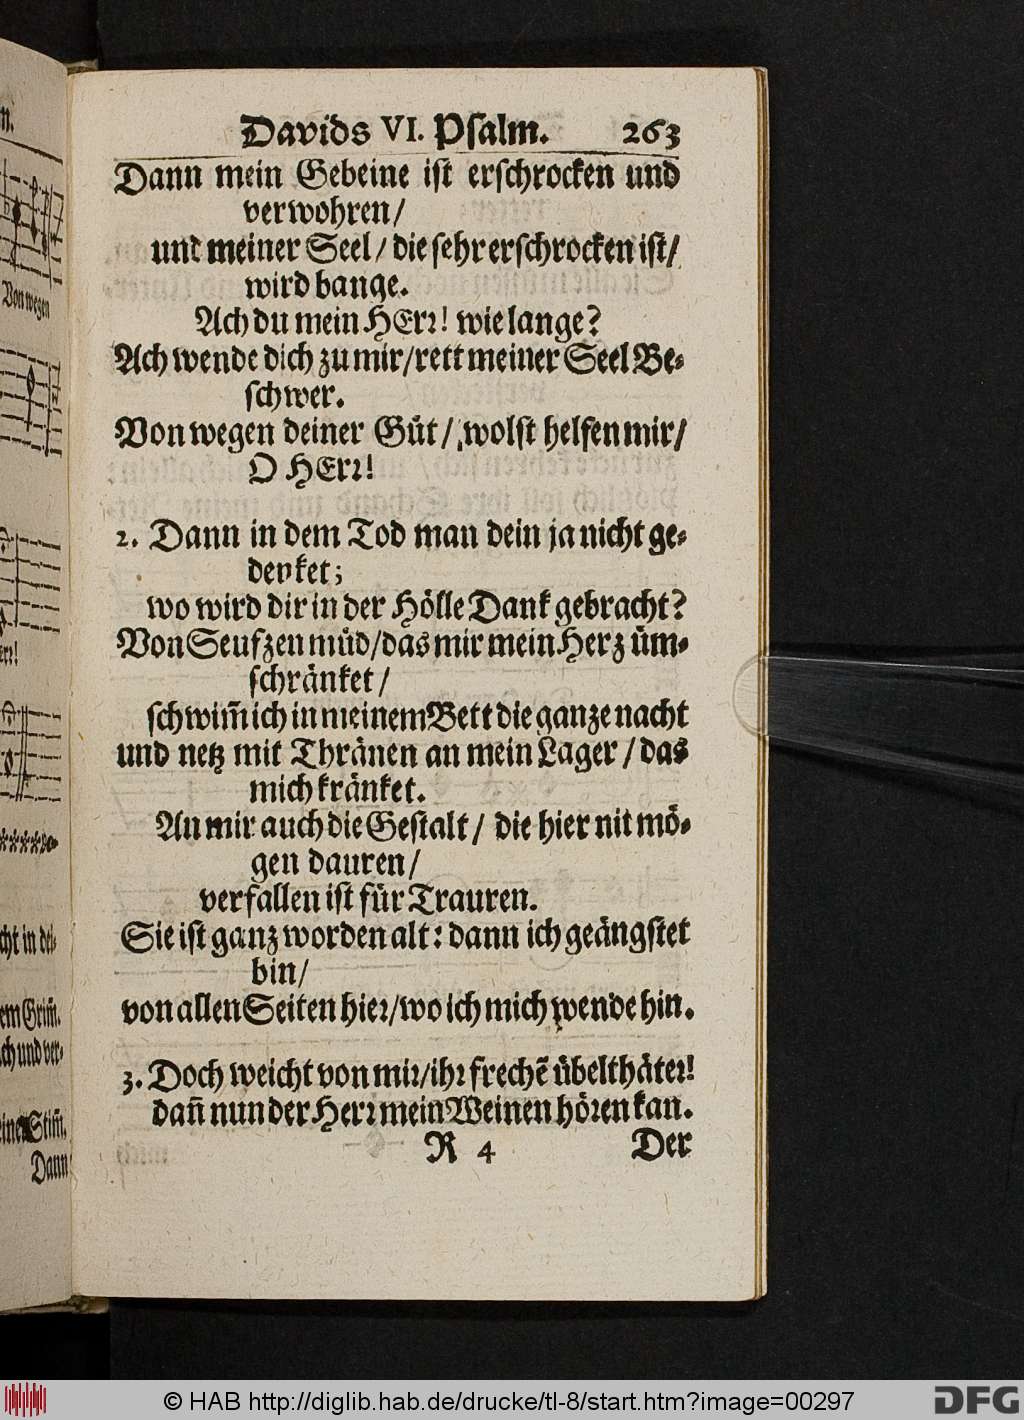 n.
Von wegen
cht in dei⸗
em Grim̃.
ch und ver⸗
Stim̃.
Dann
Davids VI. Psalm. 263
Dann mein Gebeine ist erschrocken und
verwohren/
und meiner Seel/ die sehr erschrocken ist/
wird bange.
Ach du mein HErr! wie lange?
Ach wende dich zu mir/ rett meiner Seel Be⸗
schwer.
Von wegen deiner Güt/ wolst helfen mir/
O HErr!
2. Dann in dem Tod man dein ja nicht ge⸗
denket;
wo wird dir in der Hölle Dank gebracht?
Von Seufzen müd/ das mir mein Herz üm⸗
schränket/
schwim̃ ich in meinem Bett die ganze nacht
und netz mit Thränen an mein Lager/ das
mich kränket.
An mir auch die Gestalt/ die hier nit mö⸗
gen dauren/
verfallen ist für Trauren.
Sie ist ganz worden alt: dann ich geängstet
bin/
von allen Seiten hier/ wo ich mich wende hin.
3. Doch weicht von mir/ ihr frechẽ übelthäter!
dañ nun der Herr mein Weinen hören kan.
R 4 Der
© HAB http://diglib.hab.de/drucke/tl-8/start.htm?image=00297 DFG